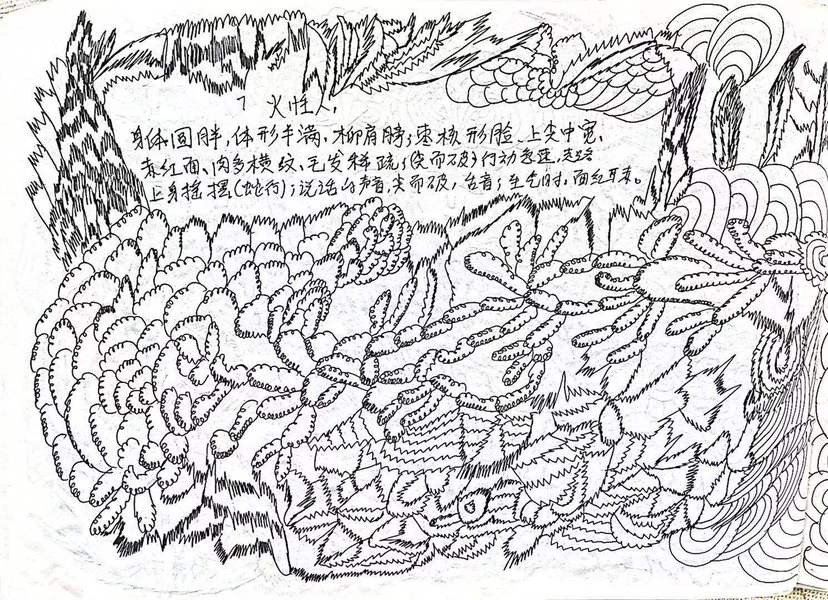 7 火性人,
身体圆胖,体形丰满,柳肩膀,枣核形脸、上尖中宽、
赤红面、肉多横纹、毛发稀疏;(尖而破)行动急速,走路
上身摇摆(蛇行);说话的声音,尖而破,台音;生气时,面红耳赤。